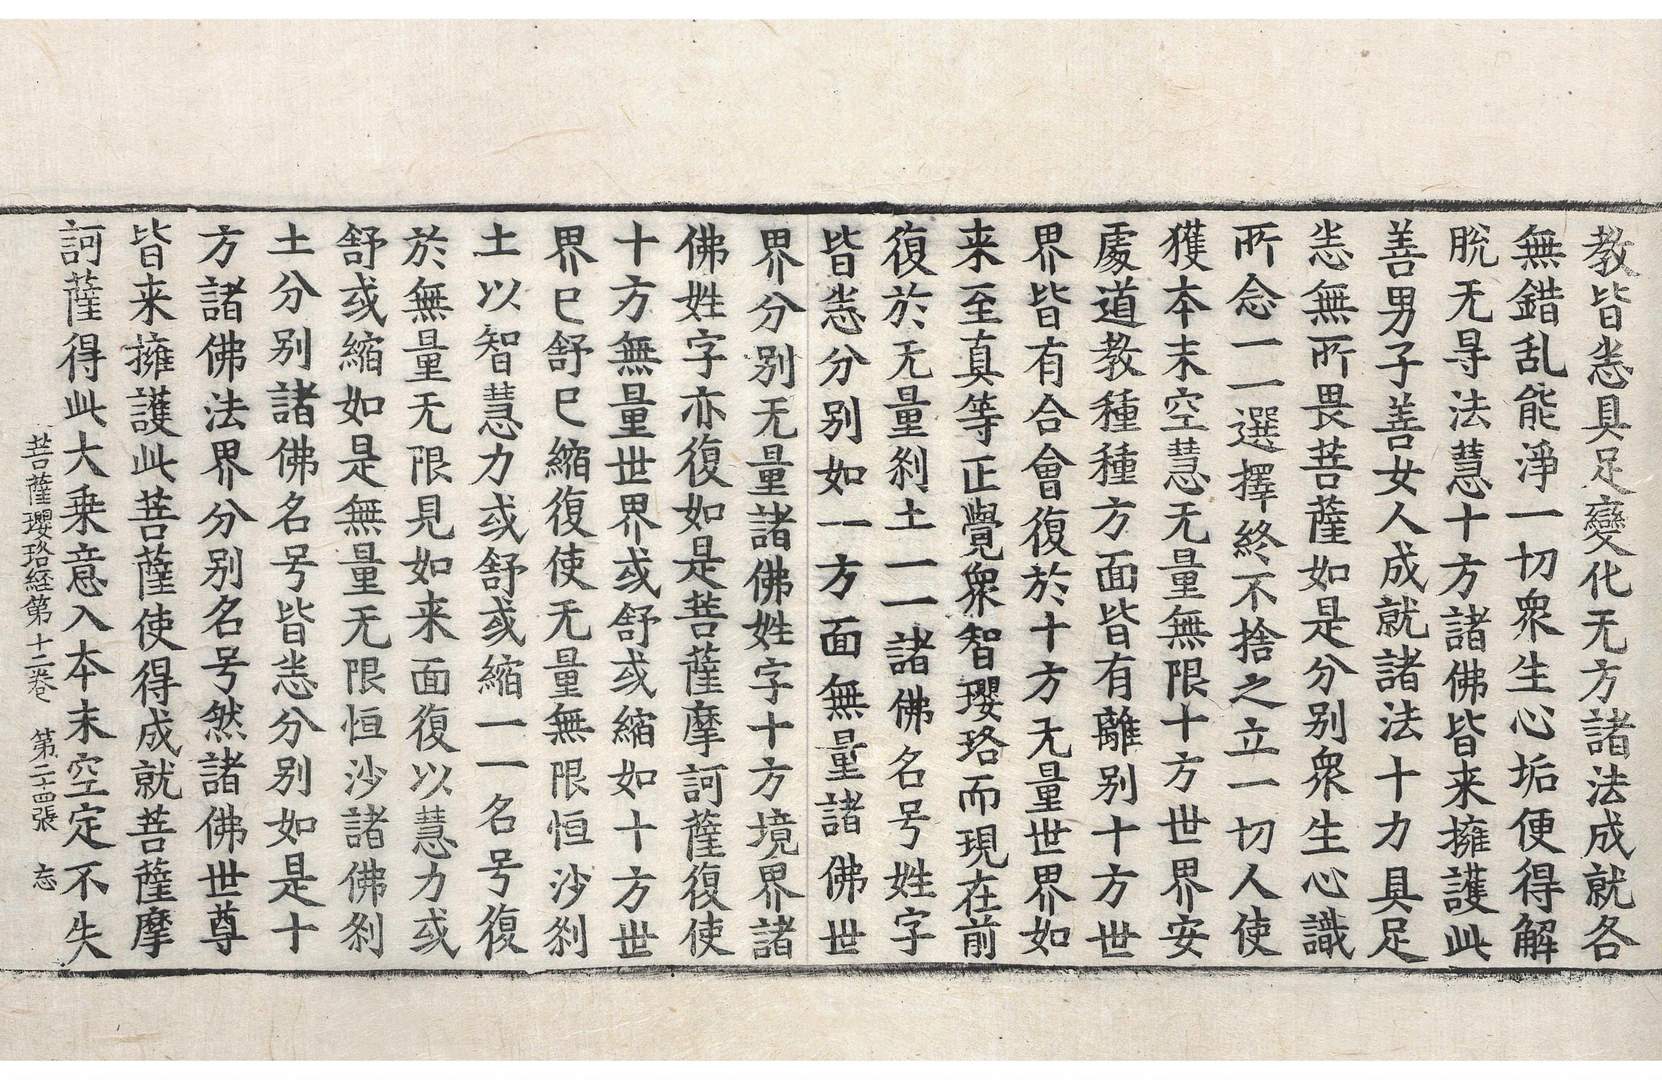 教皆恙具足變化无方諸法成就各
無錯乱能淨一切衆生心垢便得解
脫无㝵法慧十方諸佛皆来擁護此
善男子善女人成就諸法十力具足
恙無所畏菩薩如是分别衆生心識
所念一一選擇終不捨之立一切人使
獲本末空慧无量無限十方世界安
處道教種種方面皆有離别十方世
界皆有合會復於十方无量世界如
来至真等正覺衆智瓔珞而現在前
復於无量刹土一一諸佛名号姓字
皆恙分别如一方面無量諸佛世
界分别无量諸佛姓字十方境界諸
佛姓字亦復如是菩薩摩訶薩復使
十方無量世界或舒或縮如十方世
界已舒已縮復使无量無限恒沙刹
土以智慧力或舒或縮一一名号復
於無量无限見如来面復以慧力或
舒或縮如是無量无限恒沙諸佛刹
土分别諸佛名号皆恙分别如是十
方諸佛法界分别名号然諸佛世尊
皆来擁護此菩薩使得成就菩薩摩
訶薩得此大乗意入本末空定不失
菩薩瓔珞経第十二卷 第二十四張 忘